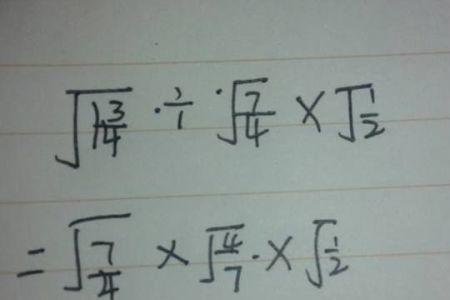 √(1 3/4) ÷ √(7/4) × √(1/2)
= √(7/4) × √(4/7) × √(1/2)